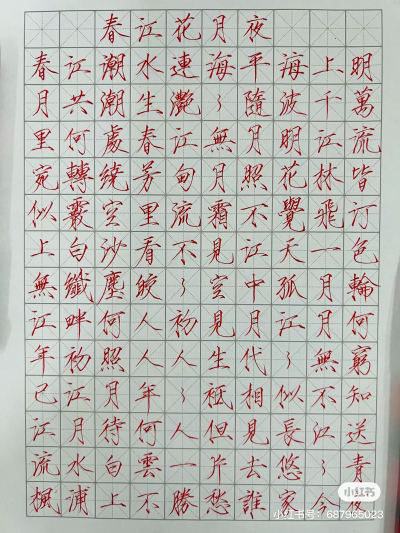 春江花月夜
春江潮水連海平海上明
月共潮生灔〻隨波千萬
里何處春江無月明江流
宛轉繞芳甸月照花林皆
似霰空里流霜不覺飛汀
上白沙看不見江天一色
無纖塵皎〻空中孤月輪
江畔何人初見月江月何
年初照人人生代〻無窮
已江月年〻袛相似不知
江月待何人但見長江送
流水白雲一片去悠〻青
楓浦上不勝愁誰家今夜
小红书
小红书号：687965023